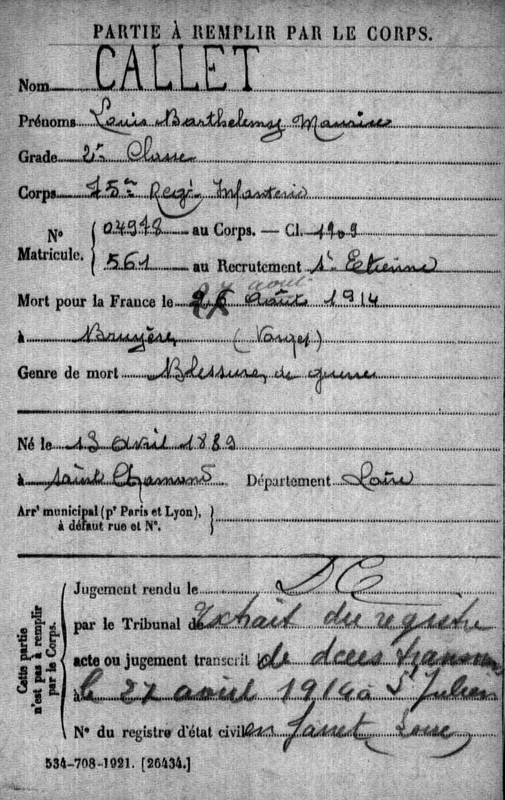 PARTIE À REMPLIR PAR LE CORPS.
Nom CALLET
Prénoms Louis Barthelemy Maurice
Grade 2e Classe
Corps 75e Regt Infanterie
No Matricule. { 04978 au Corps. — Cl. 1909
561 au Recrutement St Etienne
27 août
Mort pour la France le 26 Août 1914
à Bruyères (Vosges)
Genre de mort Blessures de guerre
Né le 13 avril 1889
à Saint Chamond Département Loire
Arrt municipal (pr Paris et Lyon), }
à défaut rue et No.
Cette partie n'est pas à remplir par le Corps.
Jugement rendu le DC
par le Tribunal de Extrait du registre
acte ou jugement transcrit le de décès transmis
à le 27 avril 1914 à St Julien
No du registre d'état civil en Jarret Loire
534-708-1921. [26434.]